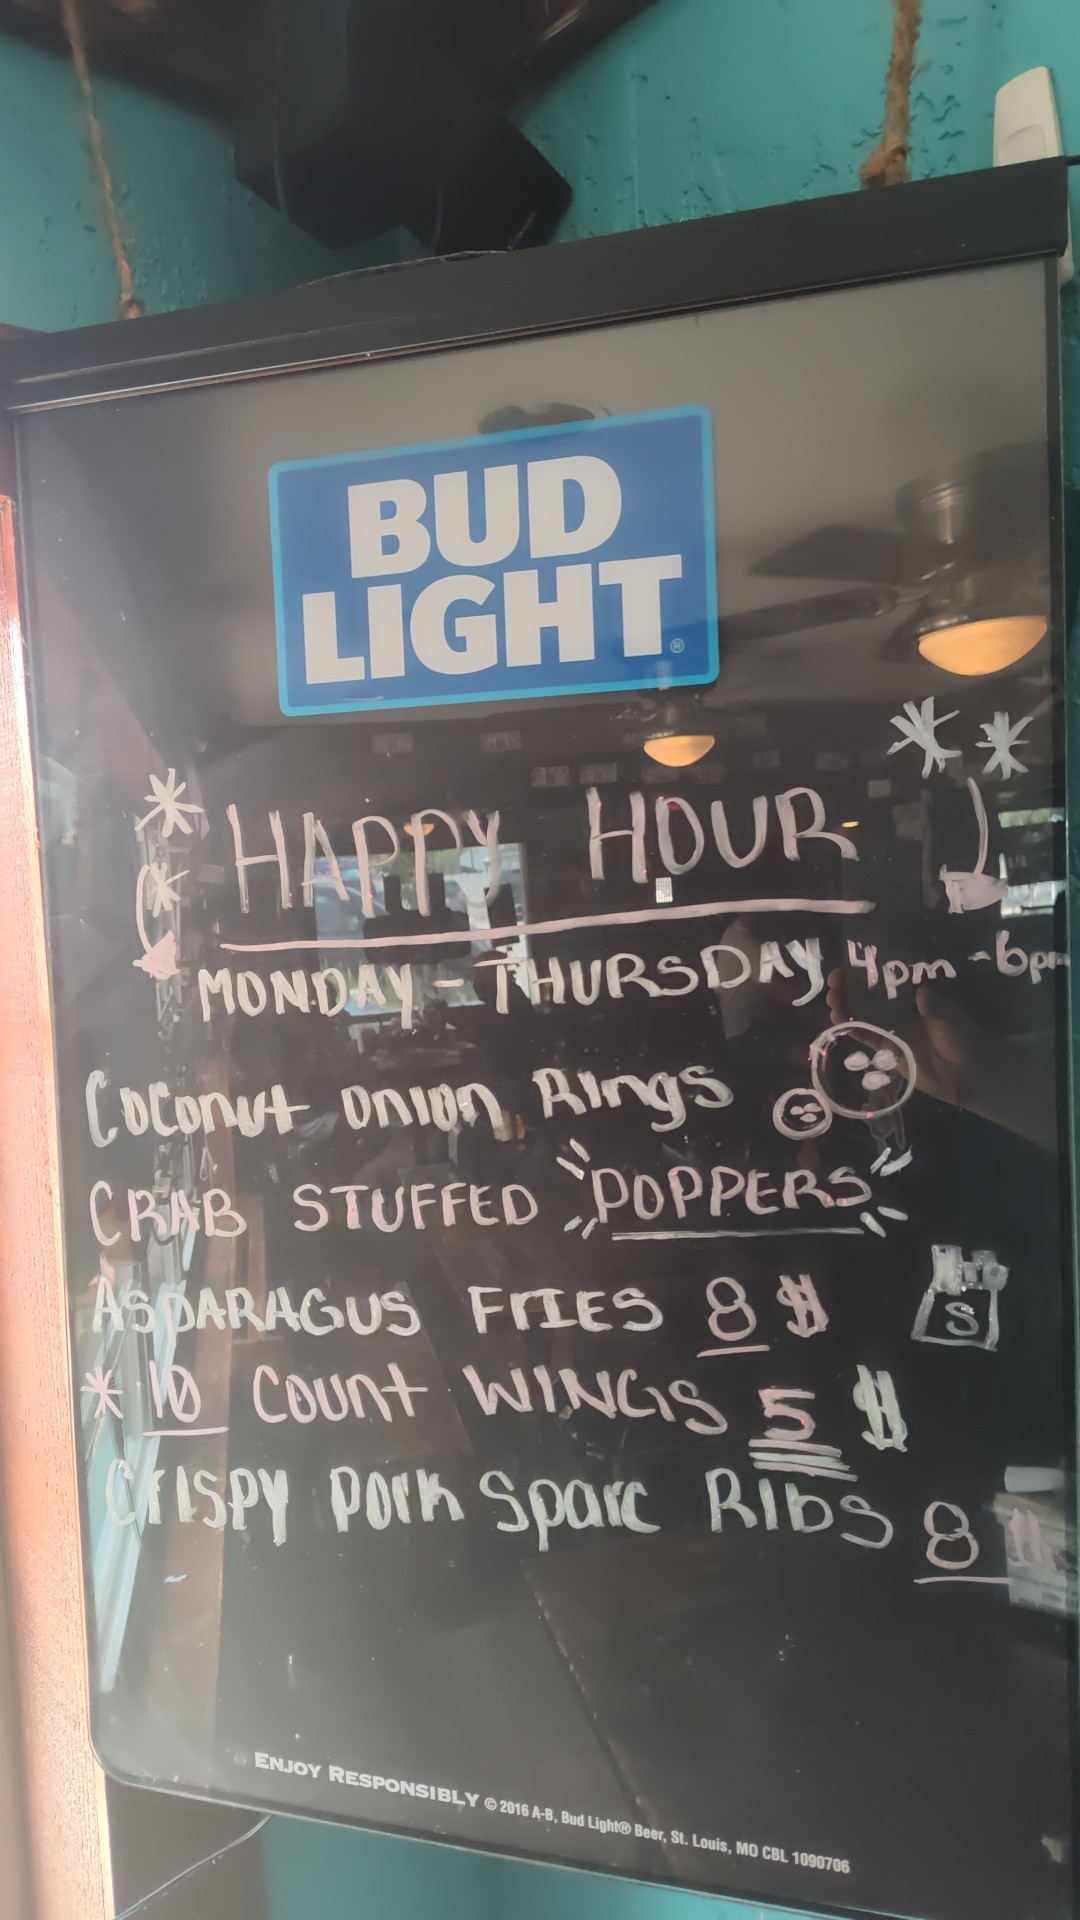 BUD
LIGHT®
HAPPY HOUR
MONDAY - THURSDAY 4pm - 6pm
Coconut Onion Rings
CRAB STUFFED "POPPERS"
ASPARAGUS FRIES 8 $
S
* 10 COUNT WINGS 5 $
CRISPY Pork Spare RIbS 8
ENJOY RESPONSIBLY © 2016 A-B, Bud Light® Beer, St. Louis, MO CBL 1090706